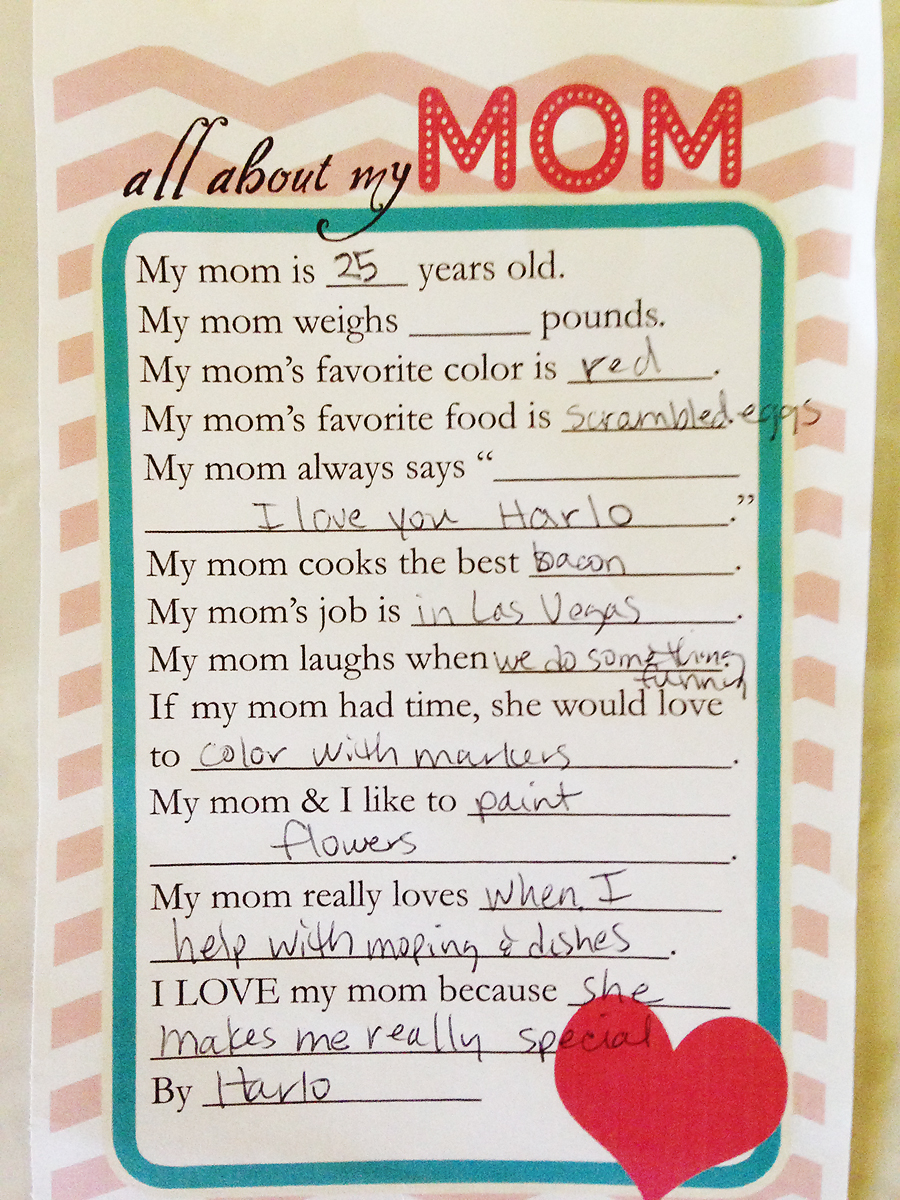 all about my MOM
My mom is 25 years old.
My mom weighs ______ pounds.
My mom's favorite color is red.
My mom's favorite food is scrambled eggs.
My mom always says “
I love you Harlo.”
My mom cooks the best bacon.
My mom's job is in Las Vegas.
My mom laughs when we do something
funny
If my mom had time, she would love
to color with markers.
My mom & I like to paint
flowers.
My mom really loves when I
help with moping & dishes.
I LOVE my mom because she
makes me really special
By Harlo